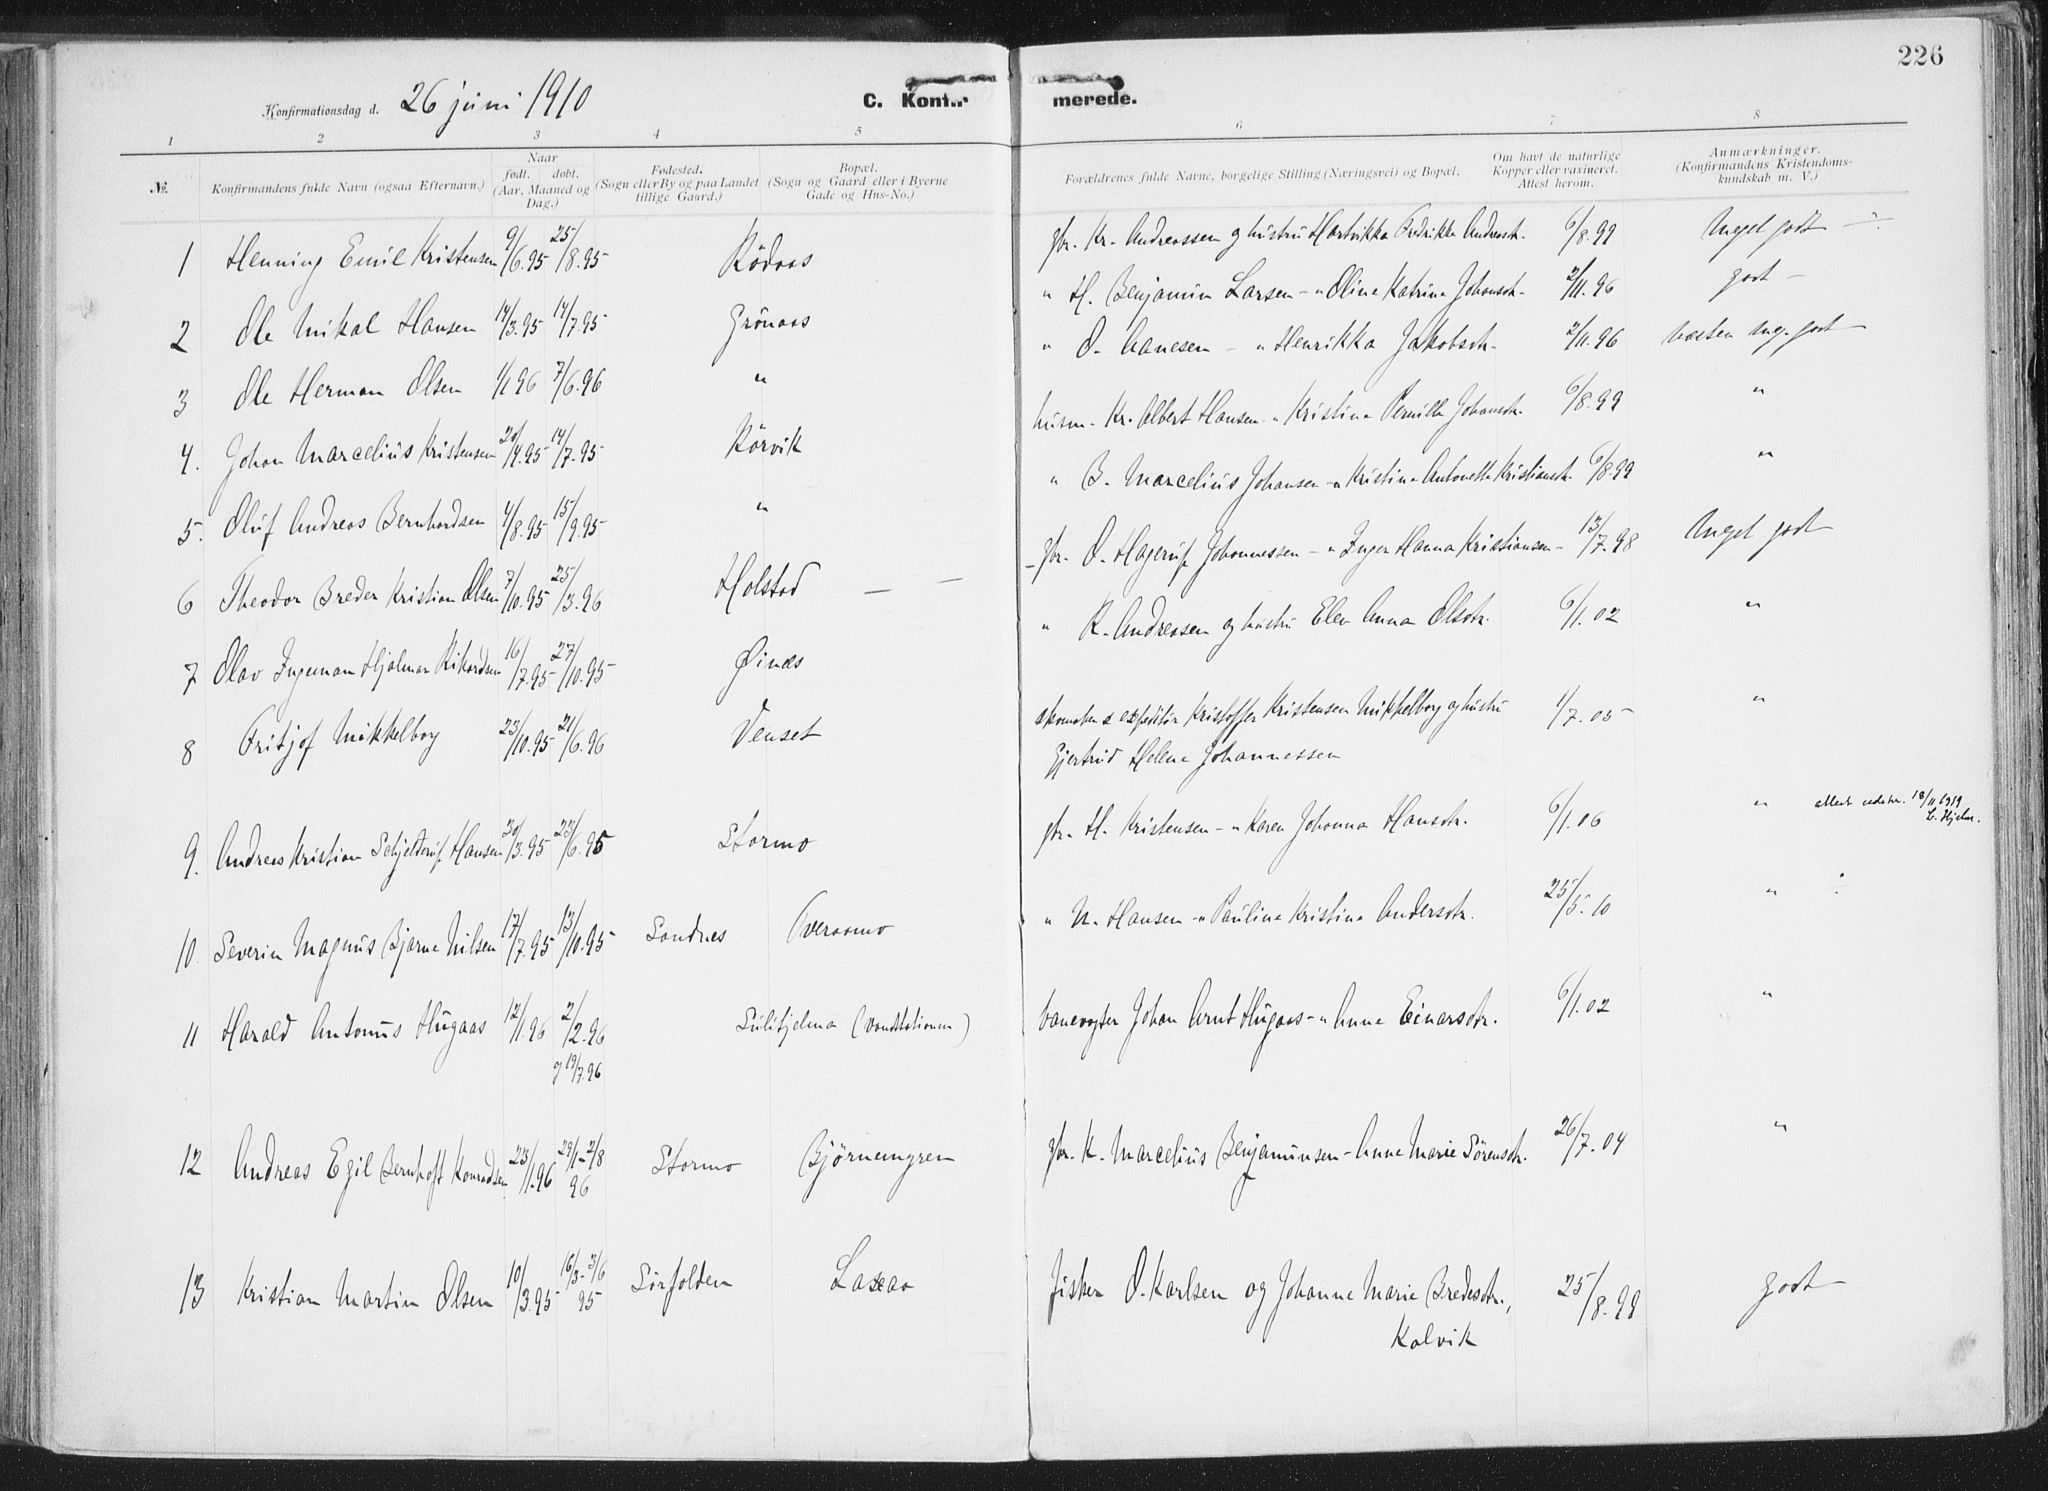 226
Konfirmationsdag d. 26 juni 1910
C. Konf merede.
1 2 3 4 5 6 7 8
№. Konfirmandens fulde Navn (ogsaa Efternavn.) Naar født. døbt. (Aar, Maaned og Dag.) Fødested. (Sogn eller By og paa Landet tillige Gaard.) Bopæl. (Sogn og Gaard eller i Byerne Gade og Hus-No.) Forældrenes fulde Navne, borgelige Stilling (Næringsvei) og Bopæl. Om havt de naturlige Kopper eller vaxineret. Attest herom. Anmærkninger. (Konfirmandens Kristendomskundskab m. V.)
1 Henning Emil Kristensen 9/6.95 25/8.95 Rödaas gbr. Kr. Andreassen og hustru Hartvikka Fredrikka Andreasdr. 6/8.99 Meget godt
2 Ole Mikal Hansen 14/3.95 14/7.95 Grönaas " H. Benjamin Larsen - " Oline Katrine Johansdr. 2/11.96 godt
3 Ole Herman Olsen 1/1 96 7/6.96 " " O. Hansen - " Henrikka Jakobsdr. 2/11.96 næsten meg. godt
4. Johan Marcelius Kristensen 20/4.95 14/7.95 Rörvik husm. Kr. Albert Hansen - " Kristine Pernille Johansdr. 6/8.99 "
5. Oluf Andreas Bernhardsen 4/8.95 15/9.95 " " B. Marcelius Johansen - " Kristine Antonette Kristiansdr. 6/8.99 "
6 Theodor Breder Kristian Olsen 7/10.95 25/3.96 Holstad gbr. O. Hagerup Johannessen - " Inger Hanna Kristiansen - 13/7.98 Meget godt
7 Olav Ingeman Hjalmar Rikardsen 16/7.95 27/10.95 Øinæs " R. Andreasen og hustru Elen Anna Olsdr. 6/1.02 "
8 Fritjof Mikkelborg 23/10.95 21/6.96 Venset skomaker & expeditör Kristoffer Kristensen Mikkelborg og hustru 1/7.05 "
Gjertrud Helene Johannessen
9. Andreas Kristian Schjelderup Hansen 30/3.95 23/6.95 Stormo gbr. H. Kristensen - " Karen Johanna Hansdr. 6/1.06 " attest udstr. 18/11 1919
10. Severin Magnus Bjarne Nilsen 17/7.95 13/10.95 Sandnes Tveraamo " N. Hansen - " Pauline Kristine Andersdr. 25/5.10 "
11 Harald Antonius Hugaas 12/1.96 2/2.96 Sulitjelma (vandstationen) banevogter Johan Arnt Hugaas - " Anne Einarsdtr. 6/1.02 "
19/7.96
12 Andreas Egil Bernhoft Konradsen 23/1.96 29/1-2/8 96 Stormo Björnemyren gbr. K. Marcelius Benjaminsen - Anne Marie Sörensdr. 26/7.04 "
13 Kristian Martin Olsen 10/3.95 16/3-3/6 95 Sörfolden Laxaa fisker O. Karlsen og Johanne Marie Bredesdtr., 25/8.99 godt
Kalvik